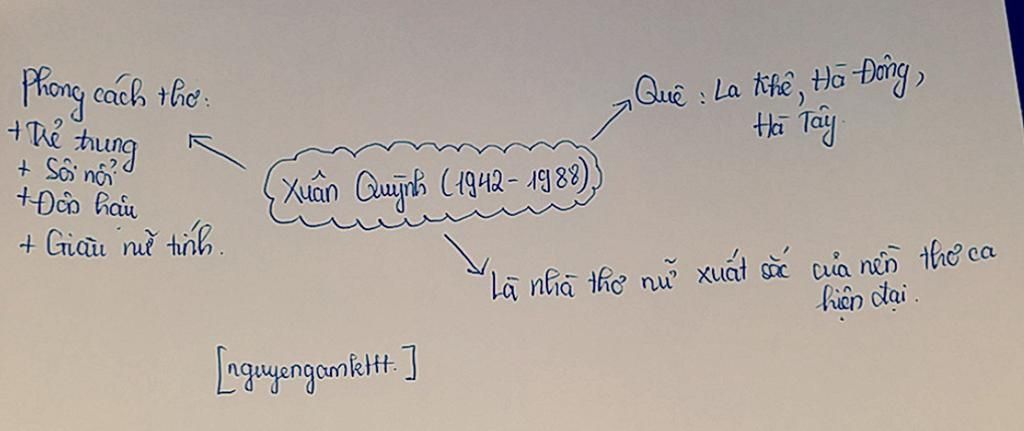 Phong cách thơ:
+ Trẻ trung
+ Sôi nổi
+ Đôn hậu
+ Giàu nữ tính.
Xuân Quỳnh (1942 - 1988)
Quê: La Khê, Hà Đông,
Hà Tây.
Là nhà thơ nữ xuất sắc của nền thơ ca
hiện đại.